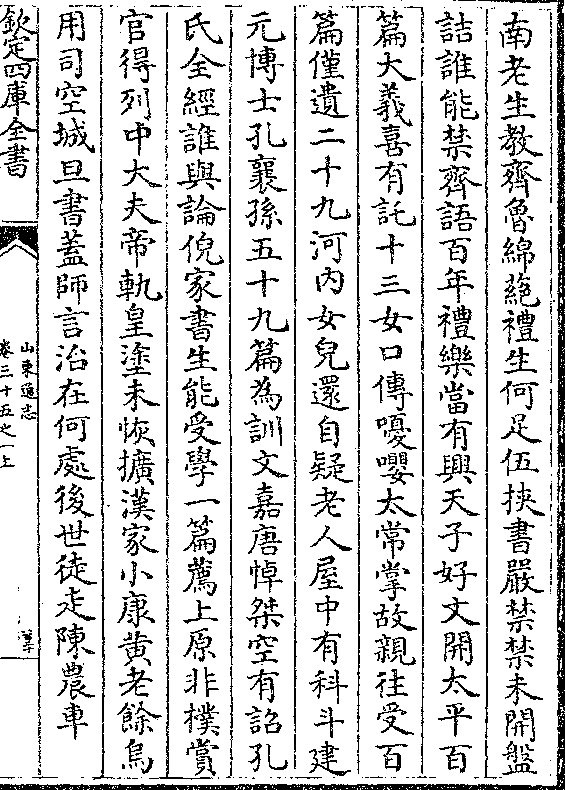 南老生教齊魯綿蕝禮生何足伍挾書嚴禁禁未開盤
詰誰能禁齊語百年禮樂當有興天子好文開太平百
篇大義喜有託十三女口傳嚘嚶太常掌故親往受百
篇僅遺二十九河内女兒還自疑老人屋中有科斗建
元博士孔襄孫五十九篇為訓文嘉唐悼桀空有詔孔
氏全經誰與論倪家書生能受學一篇薦上原非樸賞
官得列中大夫帝軌皇塗未恢擴漢家小康黄老餘烏
用司空城旦書蓋師言治在何處後世徒走陳農車
欽定四庫全書
山東通志
卷三十五之一上